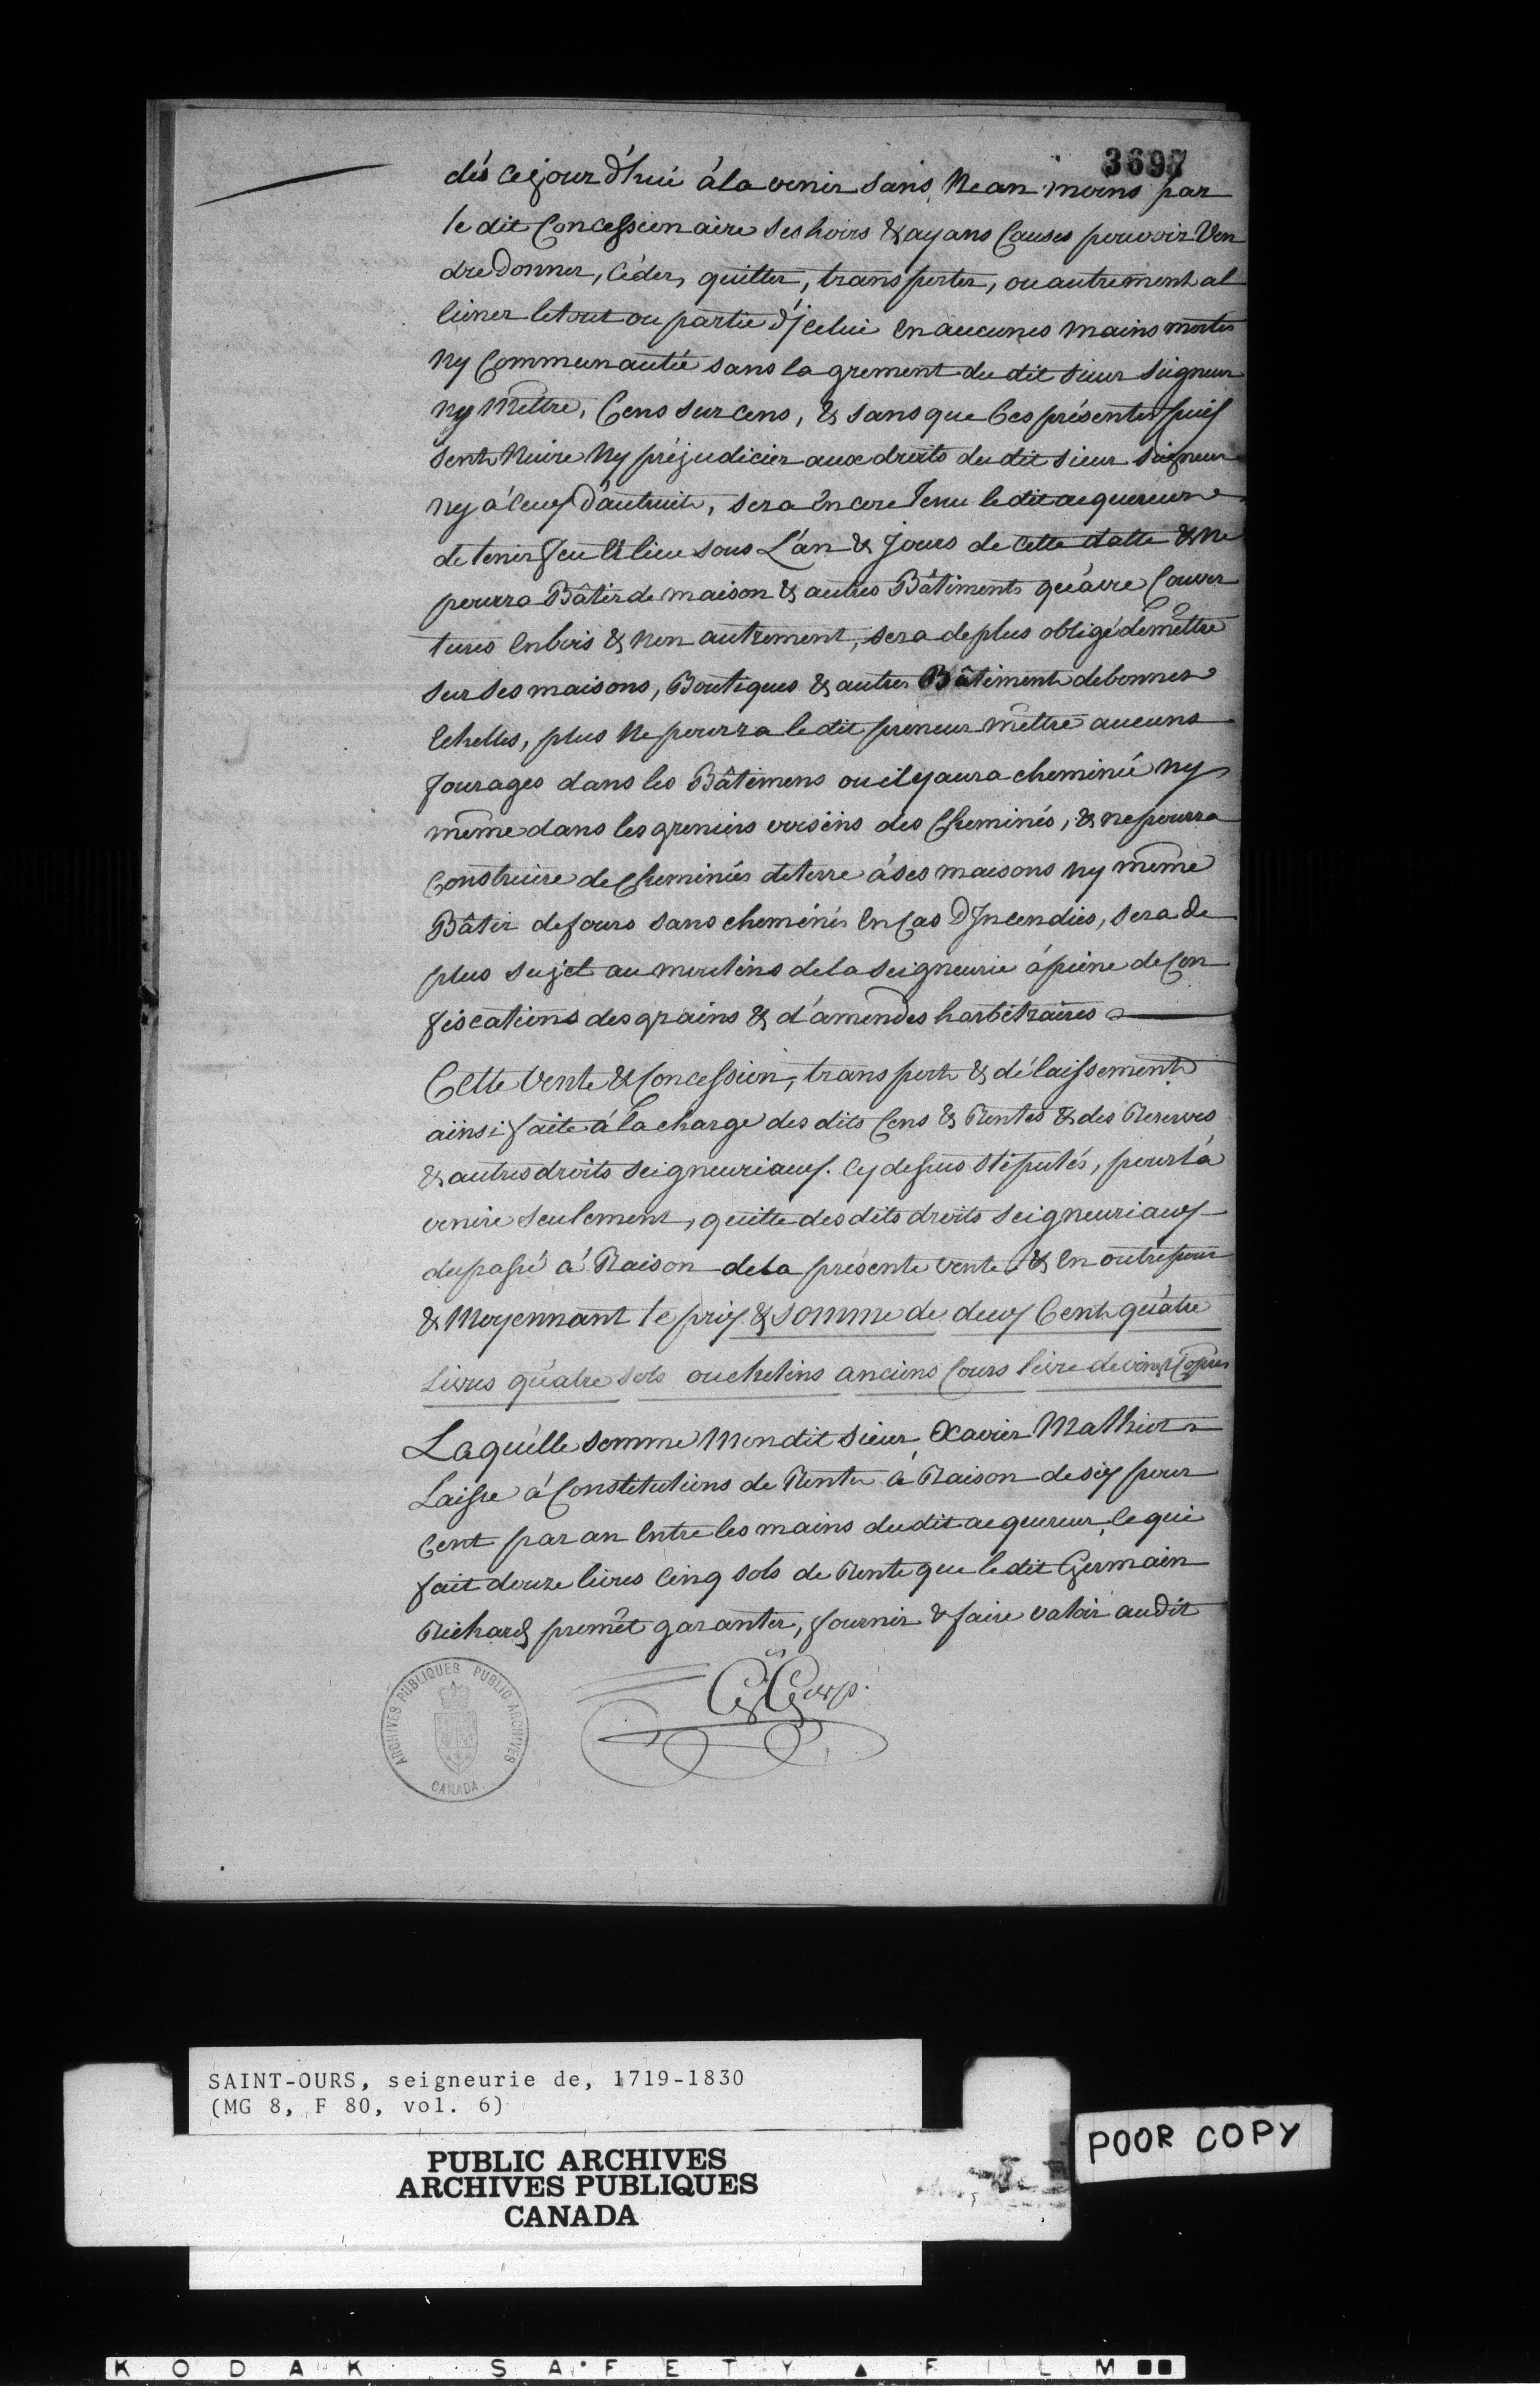 3697
dés cejour d'hui à la venir sans, Neanmoins par
le dit Concessionaire ses hoirs & ayans Causes pouvoir Ven
dre Donner, Céder, quitter, transporter, ou autrement al
liéner le tout ou partie d'jcelui en aucunes mains mortes
Ny Communautée sans la grement du dit sieur seigneur
ny Mettre, Cens sur cens, & sans que Ces présentes puis
sent Nuire Ny préjudicier aux droits du dit sieur seigneur
ny à Ceux d'autruit, sera Encore Tenu le dit acquereur
de tenir feu & lieu sous L'an & Jours de cette datte & ne
pourra Bâtir de maison & autres Bâtiments qu'avec Couver
tures en bois & non autrement, sera de plus obligé de mettre
sur ses maisons, Boutiques & autres Bâtiments de bonnes
Echelles, plus Ne pourra le dit preneur mettre aucuns
fourages dans les Bâtimens ou il y aura cheminée ny
même dans les greniers voisins des Cheminés, & ne pourra
Construire de Cheminées de terre à ses maisons ny même
Bâtir de fours sans cheminés en Cas D'Incendies, sera de
plus sujet au moulins de la seigneurie à peine de Con
fiscations des grains & d'amendes harbitraires
Cette Vente & Concession, transport & délaissement
ainsi faite à la charge des dits Cens & Rentes & des Reserves
& autres droits seigneuriaux. Cy dessus stipulés, pour l'à
venire seulement, quitte des dits droits seigneuriaux
du passé à Raison de la présente vente & en outre pour
& Moyennant le prix & somme de deux Cent quatre
Livres quatre sols ou chelins anciens Cours livre de vingt Copres
Laquelle somme Mon dit sieur Xavier Mathieu
Laisse à Constitutions de Rente à Raison de six pour
Cent par an Entre les mains du dit acquereur, ce qui
fait douze livres Cinq sols de Rente que le dit Germain
Richard promêt garanter, fournir & faire valoir au dit
ARCHIVES PUBLIQUES PUBLIC ARCHIVES
CANADA
SAINT-OURS, seigneurie de, 1719-1830
(MG 8, F 80, vol. 6)
PUBLIC ARCHIVES
ARCHIVES PUBLIQUES
CANADA
POOR COPY
KODAK SAFETY FILM